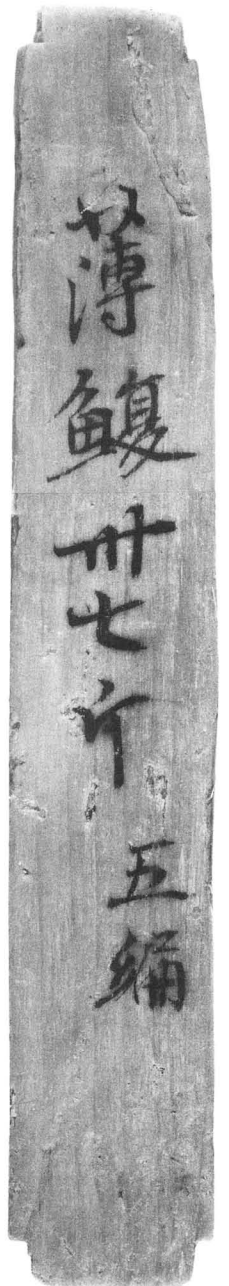 薄鰒卅七斤
五編